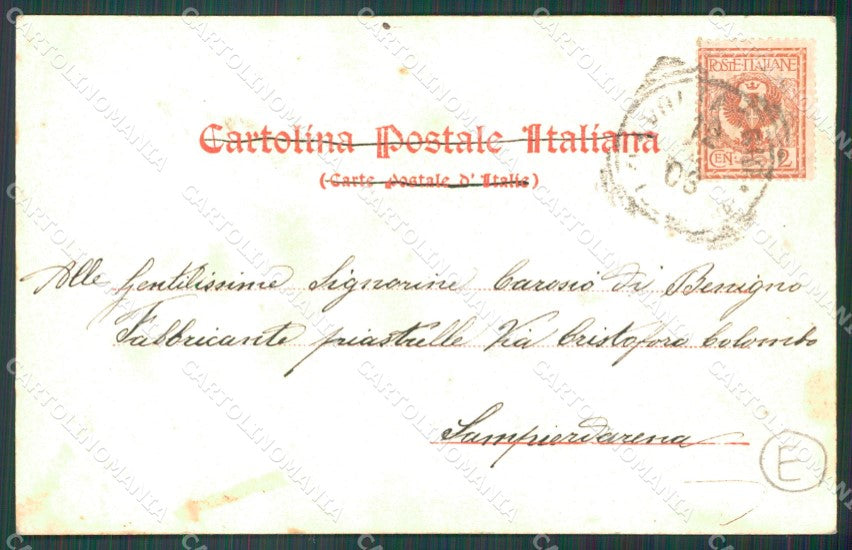 Cartolina Postale Italiana
(Carte postale d'Italie)
POSTE ITALIANE
CEN. 2
Alle Gentilissime Signorine Carosio di Benigno
Fabbricante piastrelle Via Cristoforo Colombo
Sampierdarena
E
CARTOLINOMANIA